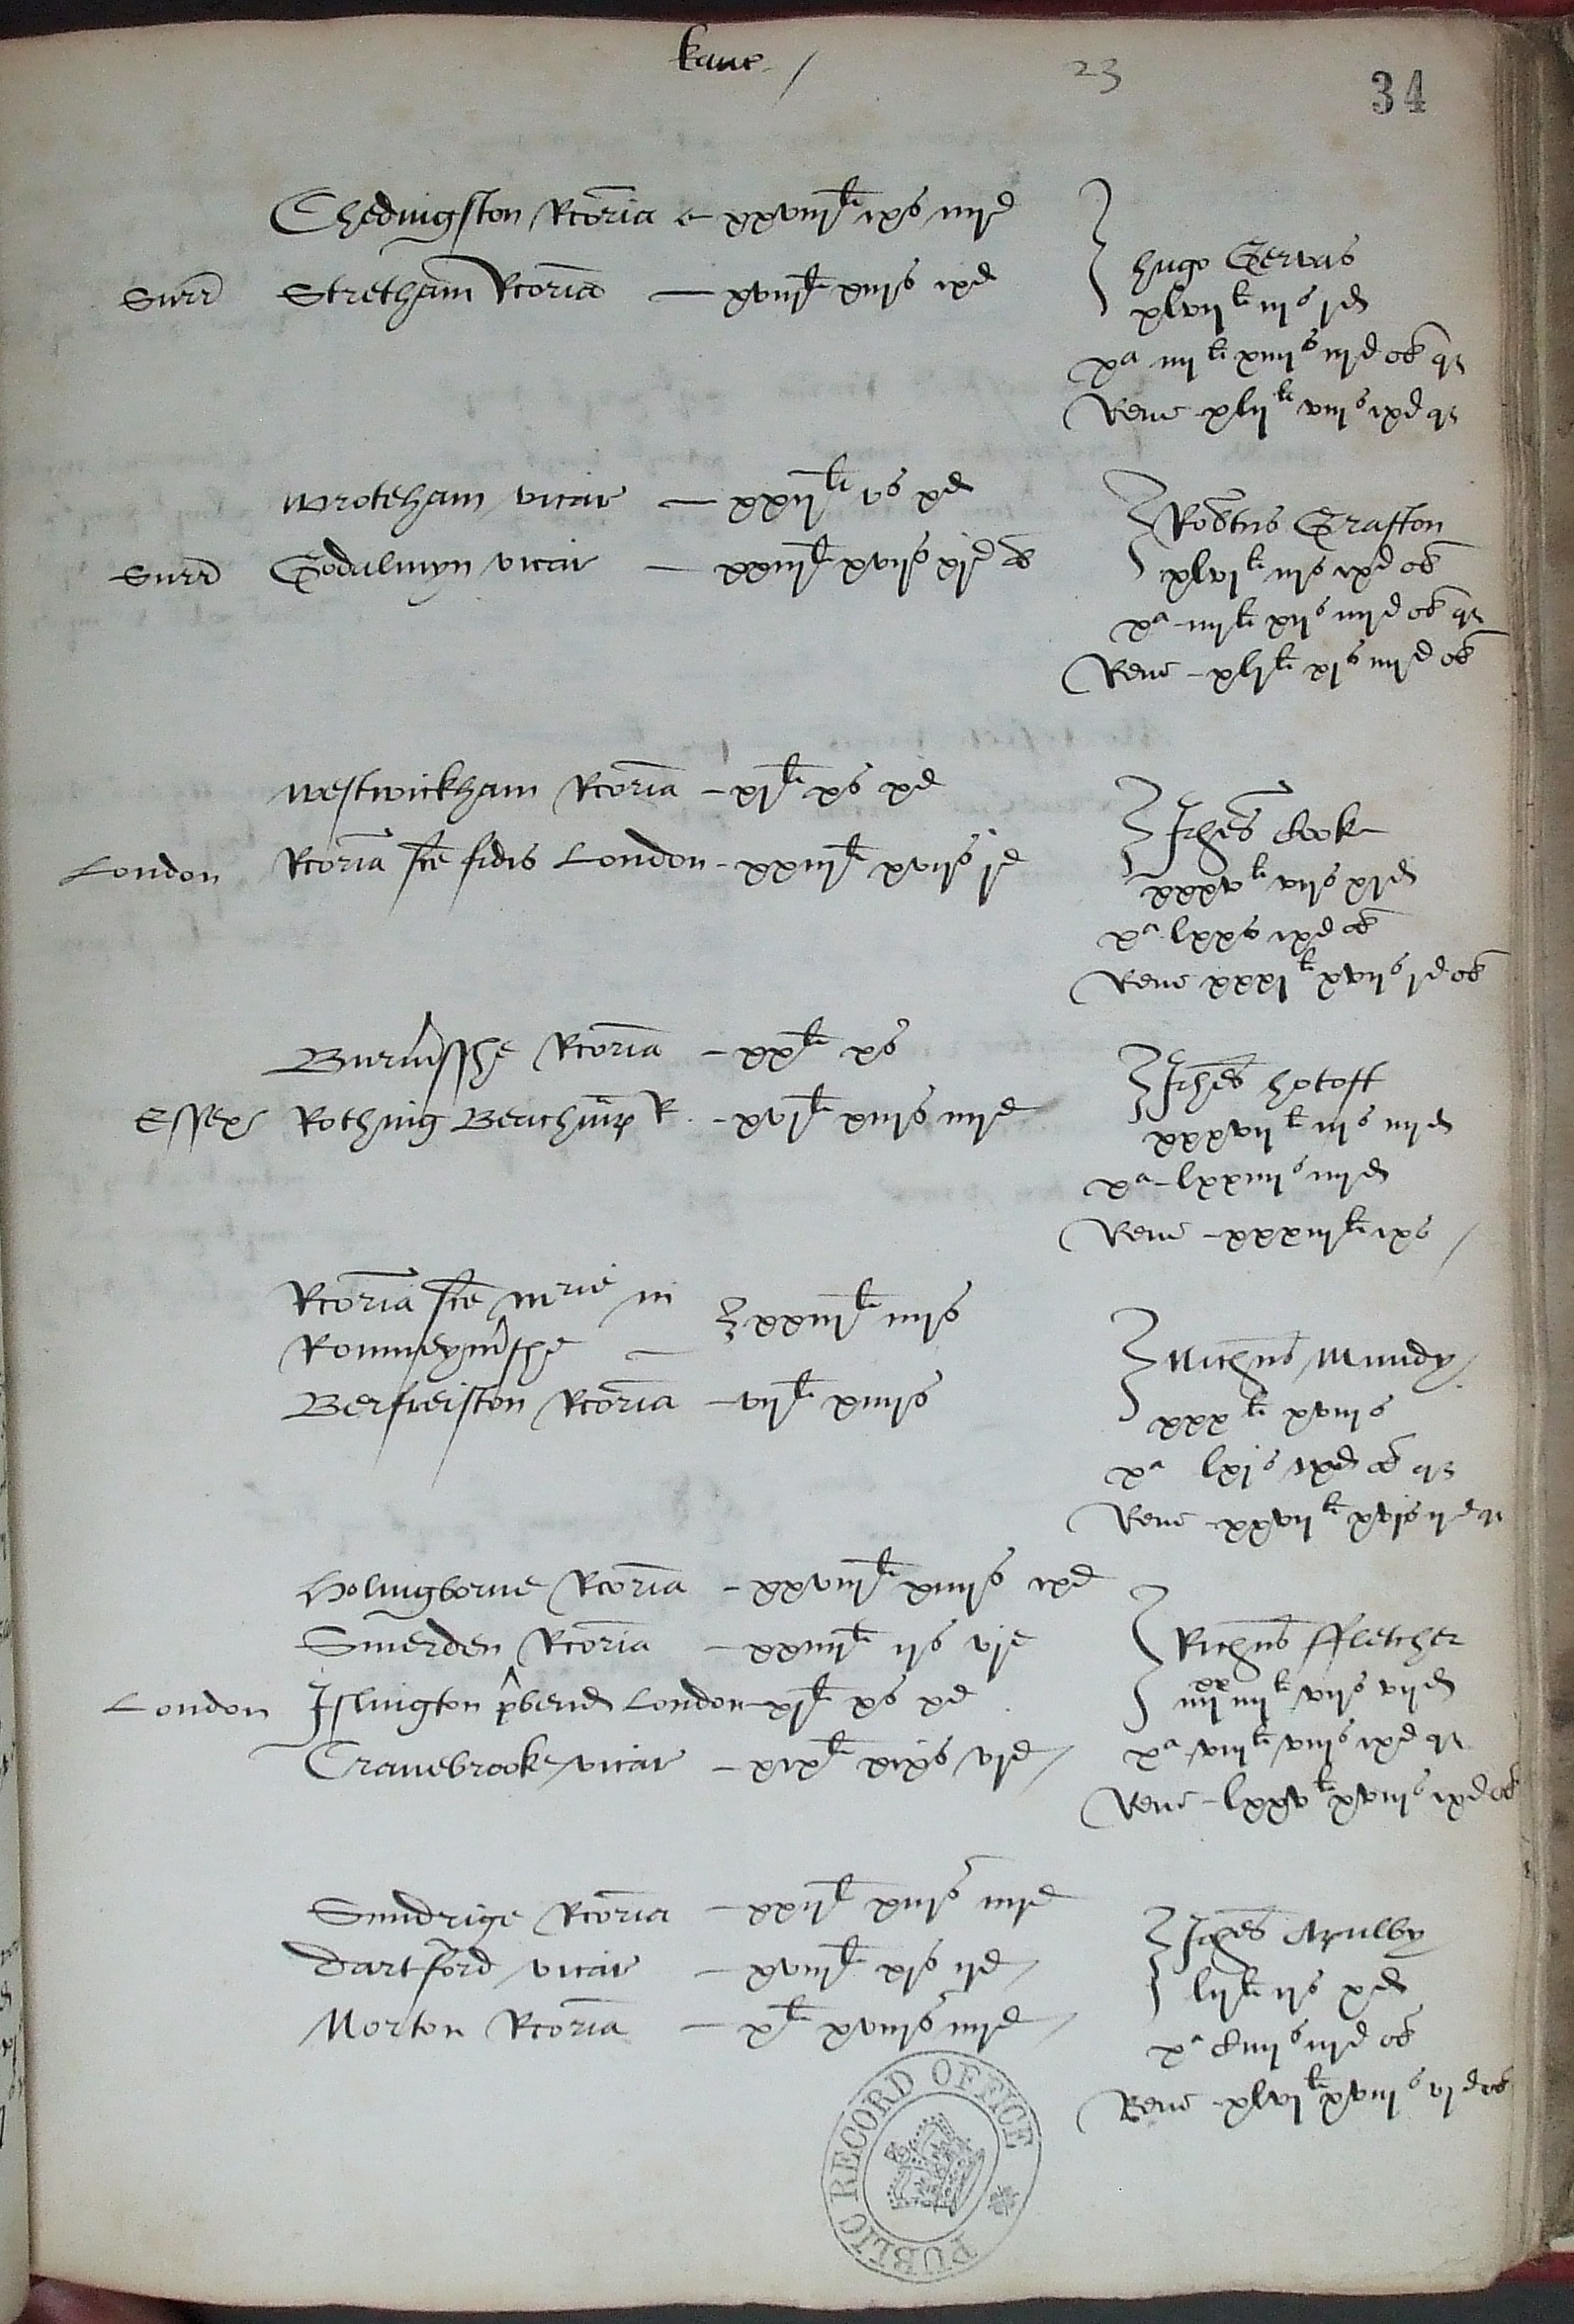 kanc /
23
34
Chedingston Rcoria – xxviijli ixs iiijd
Surr Stretham Rcoria – xviijli xiijs ixd
hugo Gervis
xlvijli iijs jd
xa iiijli xiiijs iijd ob qr
Rem xlijli viijs ixd qr
Wroteham vicar – xxijli vs xd
Surr Godalmyn vicar – xxiijli xvijs xjd ob
Robtus Grafton
xlvjli iijs ixd ob
xa – iiijli xijs iiijd ob qr
Rem – xljli xjs iiijd ob
Westwickham Rcoria – xjli xs xd
London Rcoria sce fidis London – xxiijli xvijs jd
Johes Cook
xxxvli vijs xjd
xa lxxs ixd ob
Rem xxxjli xvijs jd ob
Burmsshe Rcoria – xxli xs
Essex Rothing Beuchmp R. – xvjli xiijs iiijd
Johes hotoft
xxxvijli iijs iiijd
xa – lxxiiijs iiijd
Rem – xxxiijli ixs /
Rcoria sce Mrie in
Romneymshe – xxiijli iiijs
Berfreiston Rcoria – vijli xiiijs
Michus Mundy
xxxli xviijs
xa lxjs ixd ob qr
Rem – xxvijli xvjs ijd qr
Holingborne Rcoria – xxviijli xiiijs ixd
Smerden Rcoria – xxiiijli ijs vjd
London Islington pbend London – xjli xs xd
Cranebrooke vicar – xixli xixs vjd /
Richus Ffletcher
iiijxx iiijli vijs vijd
xa – viijli viijs ixd qr
Rem – lxxvli xviijs ixd ob
Sundrige Rcoria – xxijli xiijs iiijd
Dartford vicar – xviijli xjs ijd /
Norton Rcoria – xli xviijs iiijd /
Johes
lijli ijs xd
xa Ciiijs iijd ob
Rem – xlvjli xviijs vjd ob
PUBLIC RECORD OFFICE